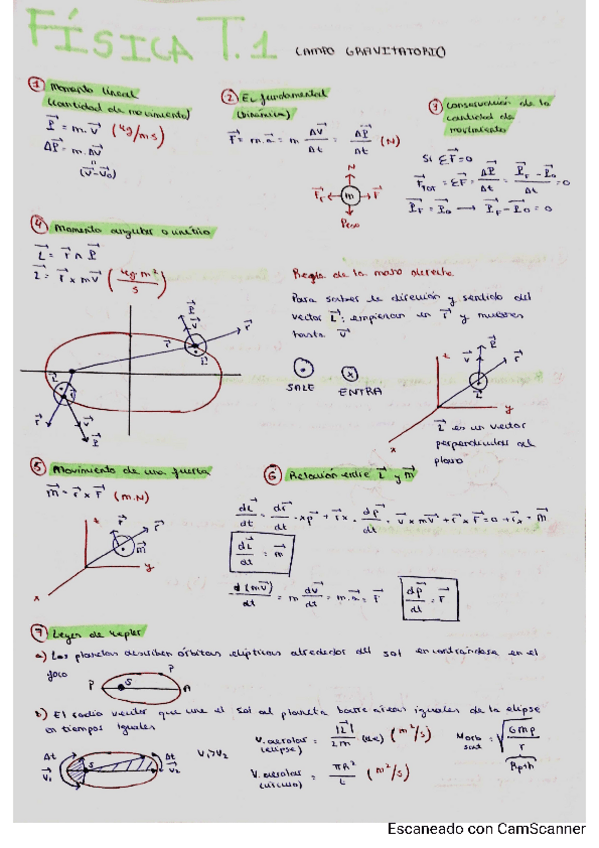 FÍSICA T.1 CAMPO GRAVITATORIO
① Momento lineal
(cantidad de movimiento)
P⃗ = m·v⃗ (kg/m s)
ΔP⃗ = m·Δv⃗
(v⃗-v⃗₀)
② Ec fundamental
(Dinámica)
F⃗ = m·a⃗ = m Δv⃗/Δt = ΔP⃗/Δt (N)
N
m
F⃗
Peso
Conservación de la
cantidad de
movimiento
Si ΣF⃗=0
F⃗TOT = ΣF⃗ = ΔP⃗/Δt = P⃗F - P⃗0/Δt = 0
P⃗F = P⃗0 → P⃗F - P⃗0 = 0
④ Momento angular o cinético
L⃗ = r⃗ ∧ P⃗
L⃗ = r⃗ x mv⃗ (kg·m²/s)
Regla de la mano derecha
Para saber la dirección y sentido del
vector L⃗: empiezan en r⃗ y mueres
hasta v⃗
SALE
ENTRA
y
x
L⃗ es un vector
perpendicular al
plano
⑤ Movimiento de una fuerza
m⃗ = r⃗ x F⃗ (m.N)
y
x
⑥ Relación entre L⃗ y m⃗
dL⃗/dt = dr⃗/dt · xp⃗ + r⃗x · dp⃗/dt · v⃗ x mv⃗ + r⃗ x F⃗ = 0 + r⃗x = m⃗
dL⃗/dt = m⃗
d(mv⃗)/dt = m dv⃗/dt = m·a⃗ = F⃗
dp⃗/dt = F⃗
⑦ Leyes de Kepler
a) Los planetas describen órbitas elípticas alrededor del sol encontrándose en el
foco
P S A
b) El radio vector que une el Sol al planeta barre áreas iguales de la elipse
en tiempos iguales
Δt S Δt
V⃗₁ V⃗₂
V₁>V₂
V.areolar (elipse) = |L⃗|/2m (m²/s)
V. areolar (círculo) = πR²/ (m²/s)
√GMp/r
Escaneado con CamScanner